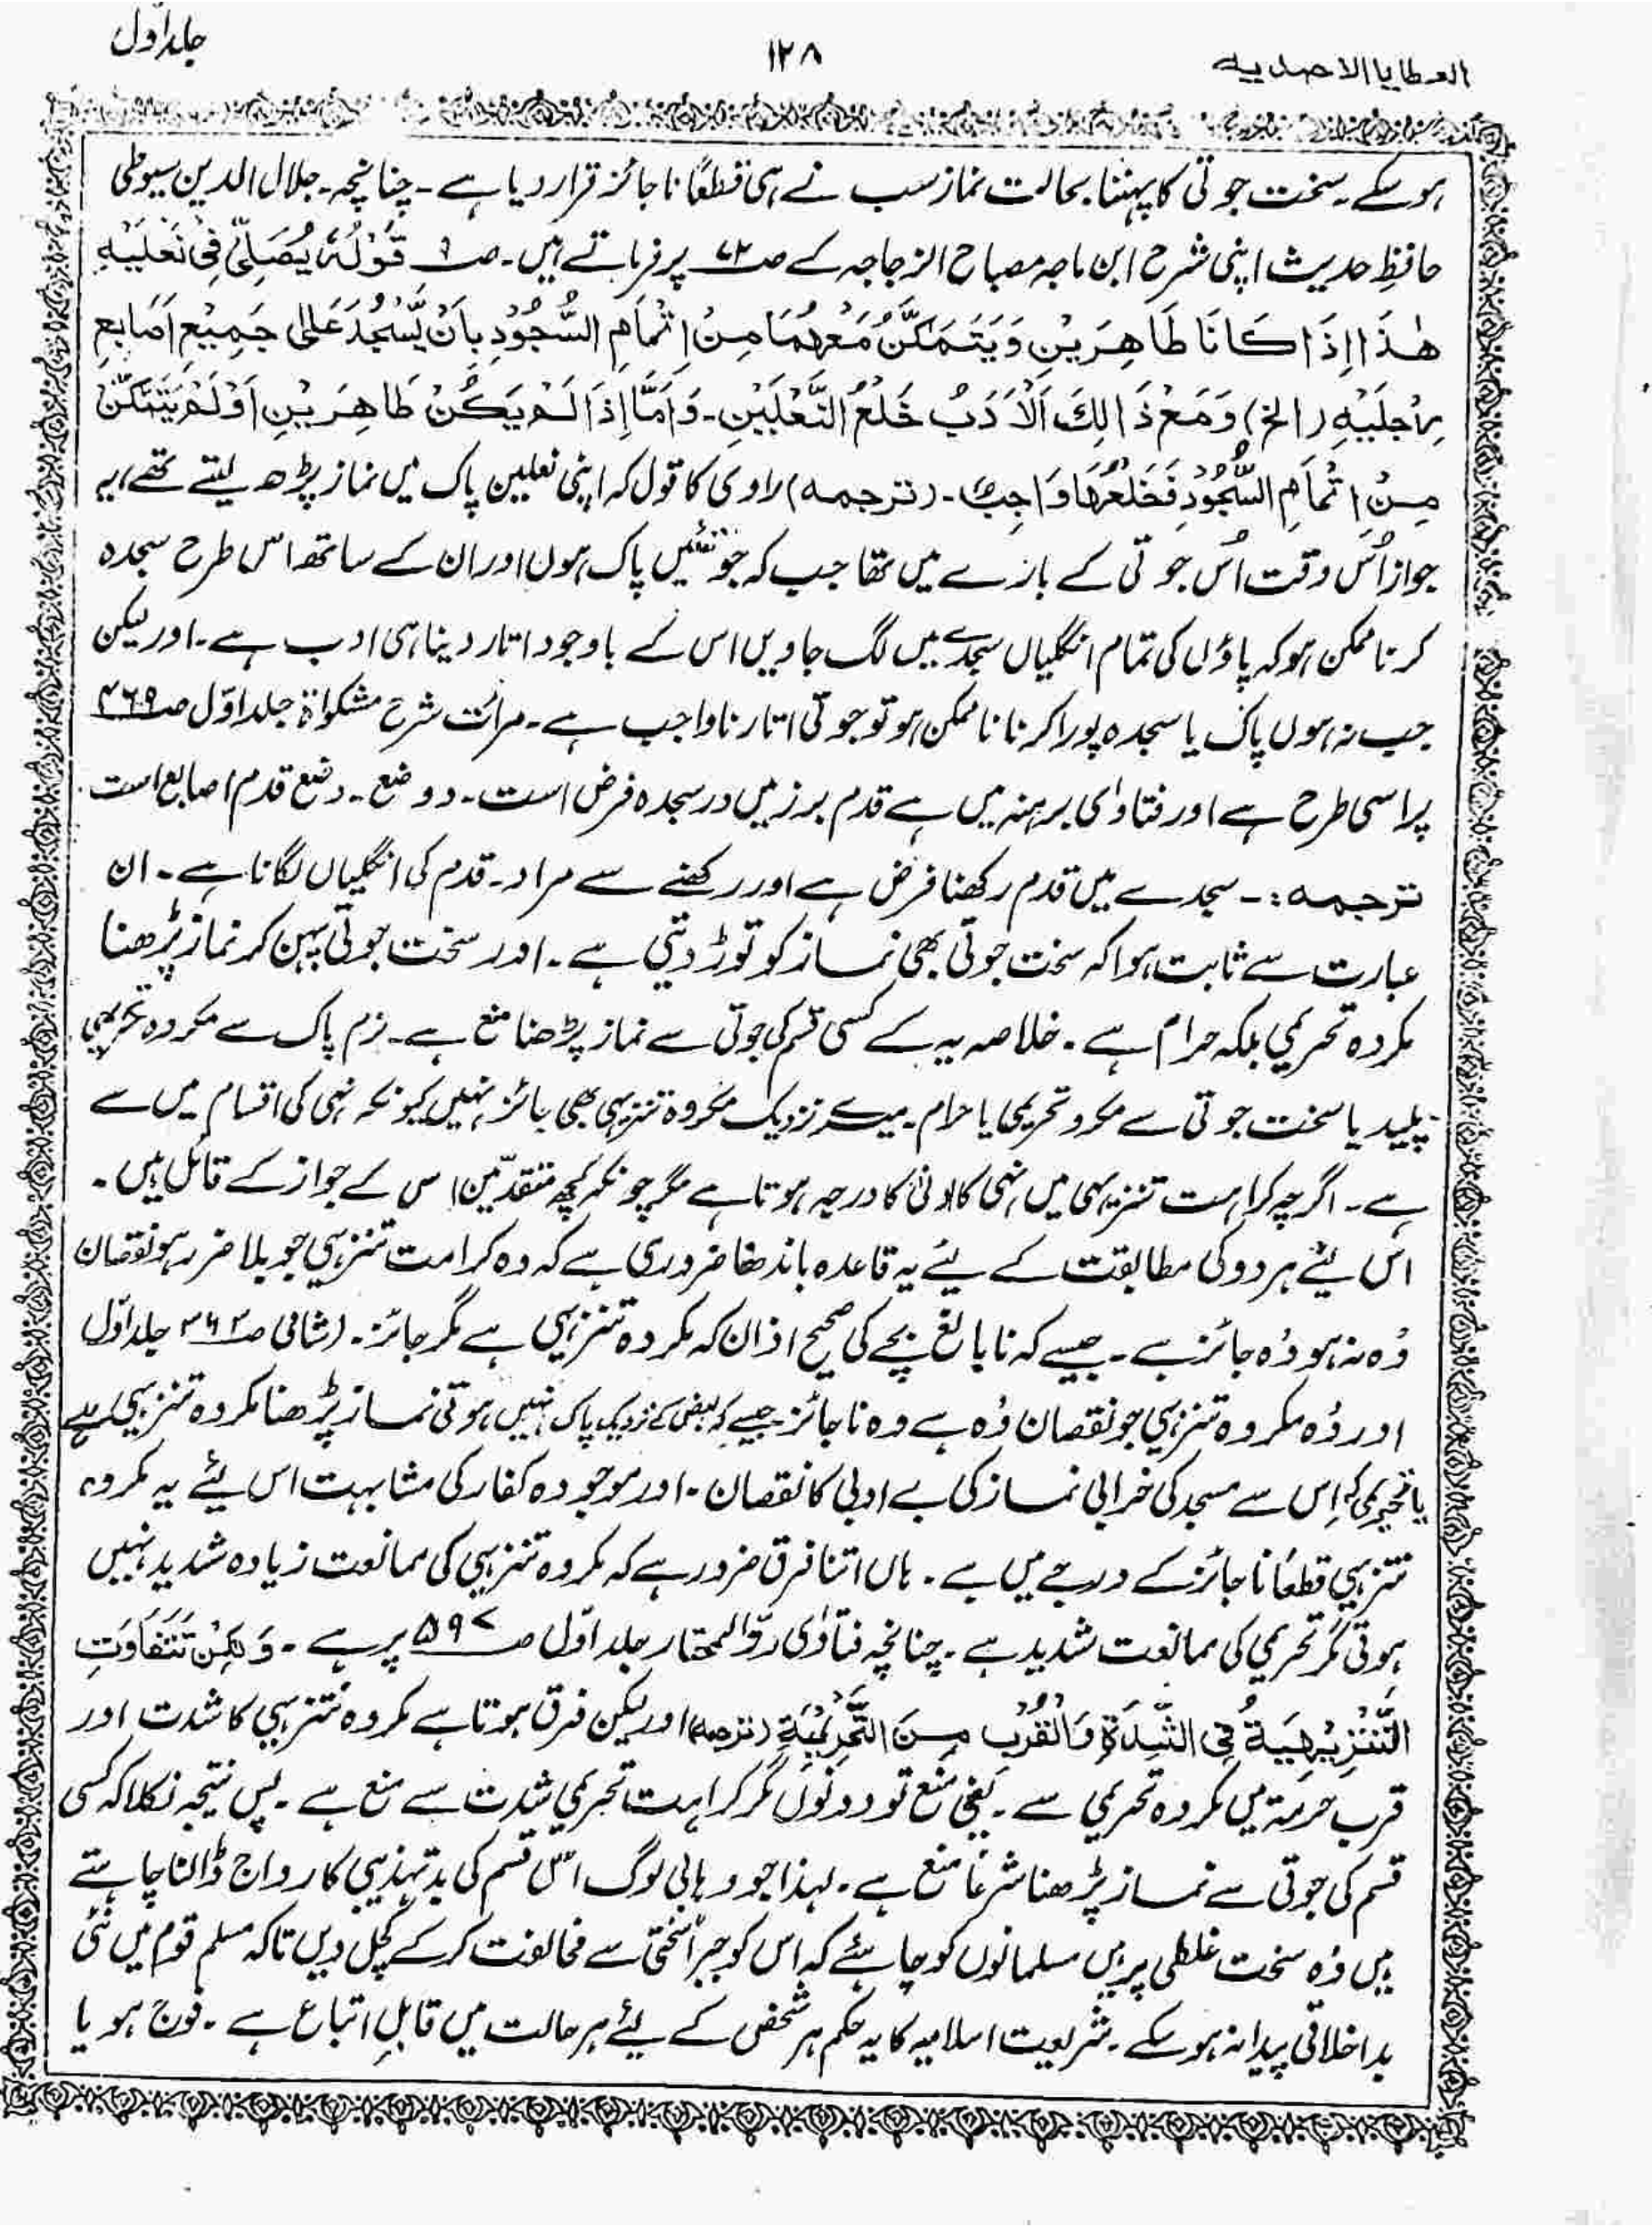 العطایا الاحمدیہ
۱۲۸
جلد اوّل
ہو سکے۔ سخت جوتی کا پہننا بحالت نماز سب نے ہی قطعًا ناجائز قرار دیا ہے۔ چنانچہ۔ جلال الدین سیوطی
حافظِ حدیث اپنی شرح ابن ماجہ مصباح الزجاجہ کے صـ۷۲ پر فرماتے ہیں۔ صـ۹ قَوْلُہٗ یُصَلِّیْ فِیْ نَعْلَیْہِ
ھٰذَا اِذَا کَانَا طَاھِرَیْنِ وَیَتَمَکَّنُ مَعَھُمَا مِنْ اِتْمَامِ السُّجُوْدِ بِاَنْ یَّسْجُدَ عَلٰی جَمِیْعِ اَصَابِعِ
رِجْلَیْہِ (الخ) وَمَعْ ذَالِکَ اَلْاَدَبُ خَلْعُ النَّعْلَیْنِ۔ وَاَمَّا اِذَا لَمْ یَکُنْ طَاھِرَیْنِ اَوْلَمْ یَتَمَکَّنْ
مِنْ اِتْمَامِ السُّجُوْدِ فَخَلْعُھَا وَاجِبٌ۔ (ترجمہ) راوی کا قول کہ اپنی نعلین پاک میں نماز پڑھ لیتے تھے یہ
جواز اُس وقت اُس جوتی کے بارے میں تھا جب کہ جو نعلین پاک ہوں اور ان کے ساتھ اس طرح سجدہ
کرنا ممکن ہو کہ پاؤں کی تمام انگلیاں سجدے میں لگ جاویں اس کے باوجود اتار دینا ہی ادب ہے۔ اور لیکن
جب نہ ہوں پاک یا سجدہ پورا کرنا ناممکن ہو تو جوتی اتارنا واجب ہے۔ مرآت شرح مشکواۃ جلد اوّل صـ۴۶۹
پر اسی طرح ہے اور فتاوٰی برہنہ میں ہے قدم بر زمیں در سجدہ فرض است۔ و وضع۔ وضع قدم اصابع است
ترجمہ:۔ سجدے میں قدم رکھنا فرض ہے اور رکھنے سے مراد۔ قدم کی انگلیاں لگانا ہے۔ ان
عبارت سے ثابت ہوا کہ سخت جوتی بھی نماز کو توڑ دیتی ہے۔ اور سخت جوتی پہن کر نماز پڑھنا
مکروہ تحریمی بلکہ حرام ہے۔ خلاصہ یہ کے کسی قسم کی جوتی سے نماز پڑھنا منع ہے۔ نرم پاک سے مکروہ تنزیہی
پلید یا سخت جوتی سے مکرو تحریمی یا حرام۔ میرے نزدیک مکروہ تنزیہی بھی جائز نہیں کیونکہ نہی کی اقسام میں سے
ہے۔ اگرچہ کراہت تنزیہی میں نہی کا ادنیٰ کا درجہ ہوتا ہے مگر چونکہ کچھ متقدّمین اس کے جواز کے قائل ہیں۔
اس لیئے ہر دو کی مطابقت کے لیئے یہ قاعدہ باندھنا ضروری ہے کہ وہ کراہت تنزیہی جو بلا ضرر ہو نقصان
وُہ نہ ہو وُہ جائز ہے۔ جیسے کہ نابالغ بچے کی صحیح اذان کہ مکروہ تنزیہی ہے مگر جائز۔ (شامی صـ۳۶۲ جلد اوّل
اور وُہ مکروہ تنزیہی جو نقصان وُہ ہے وہ ناجائز جیسے کہ بعض کے نزدیک پاک نہیں ہوتی نماز پڑھنا مکروہ تنزیہی ہے
یا تحریمی کہ اِس سے مسجد کی خرابی نماز کی بے ادبی کا نقصان۔ اور موجودہ کفار کی مشابہت اس لیئے یہ مکروہ
تنزیہی قطعًا ناجائز کے درجے میں ہے۔ ہاں اتنا فرق ضرور ہے کہ مکروہ تنزیہی کی ممانعت زیادہ شدید نہیں
ہوتی مگر تحریمی کی ممانعت شدید ہے۔ چنانچہ فتاوٰی ردّالمحتار جلد اوّل صـ۵۹۷ پر ہے۔ وَلٰکِنْ تَتَفَاوَتِ
التَّنْزِیْھِیَۃُ فِی الشِّدَۃِ وَالْقُرْبِ مِنَ التَّحْرِیْمِیَۃِ (ترجمہ) اور لیکن فرق ہوتا ہے مکروہ تنزیہی کا شدت اور
قرب حرمتہ میں مکروہ تحریمی سے۔ یعنی منع تو دونوں مگر کراہت تحریمی شدت سے منع ہے۔ پس نتیجہ نکلا کہ کسی
قسم کی جوتی سے نماز پڑھنا شرعًا منع ہے۔ لہذا جو وہابی لوگ اس قسم کی بدتہذیبی کا رواج ڈالنا چاہتے
ہیں وُہ سخت غلطی پر ہیں مسلمانوں کو چاہیئے کہ اس کو جبرًا سختی سے مخالفت کر کے کچل دیں تاکہ مسلم قوم میں نئی
بداخلاقی پیدا نہ ہو سکے۔ شریعت اسلامیہ کا یہ حکم ہر شخص کے لیئے ہر حالت میں قابلِ اتباع ہے۔ فوج ہو یا